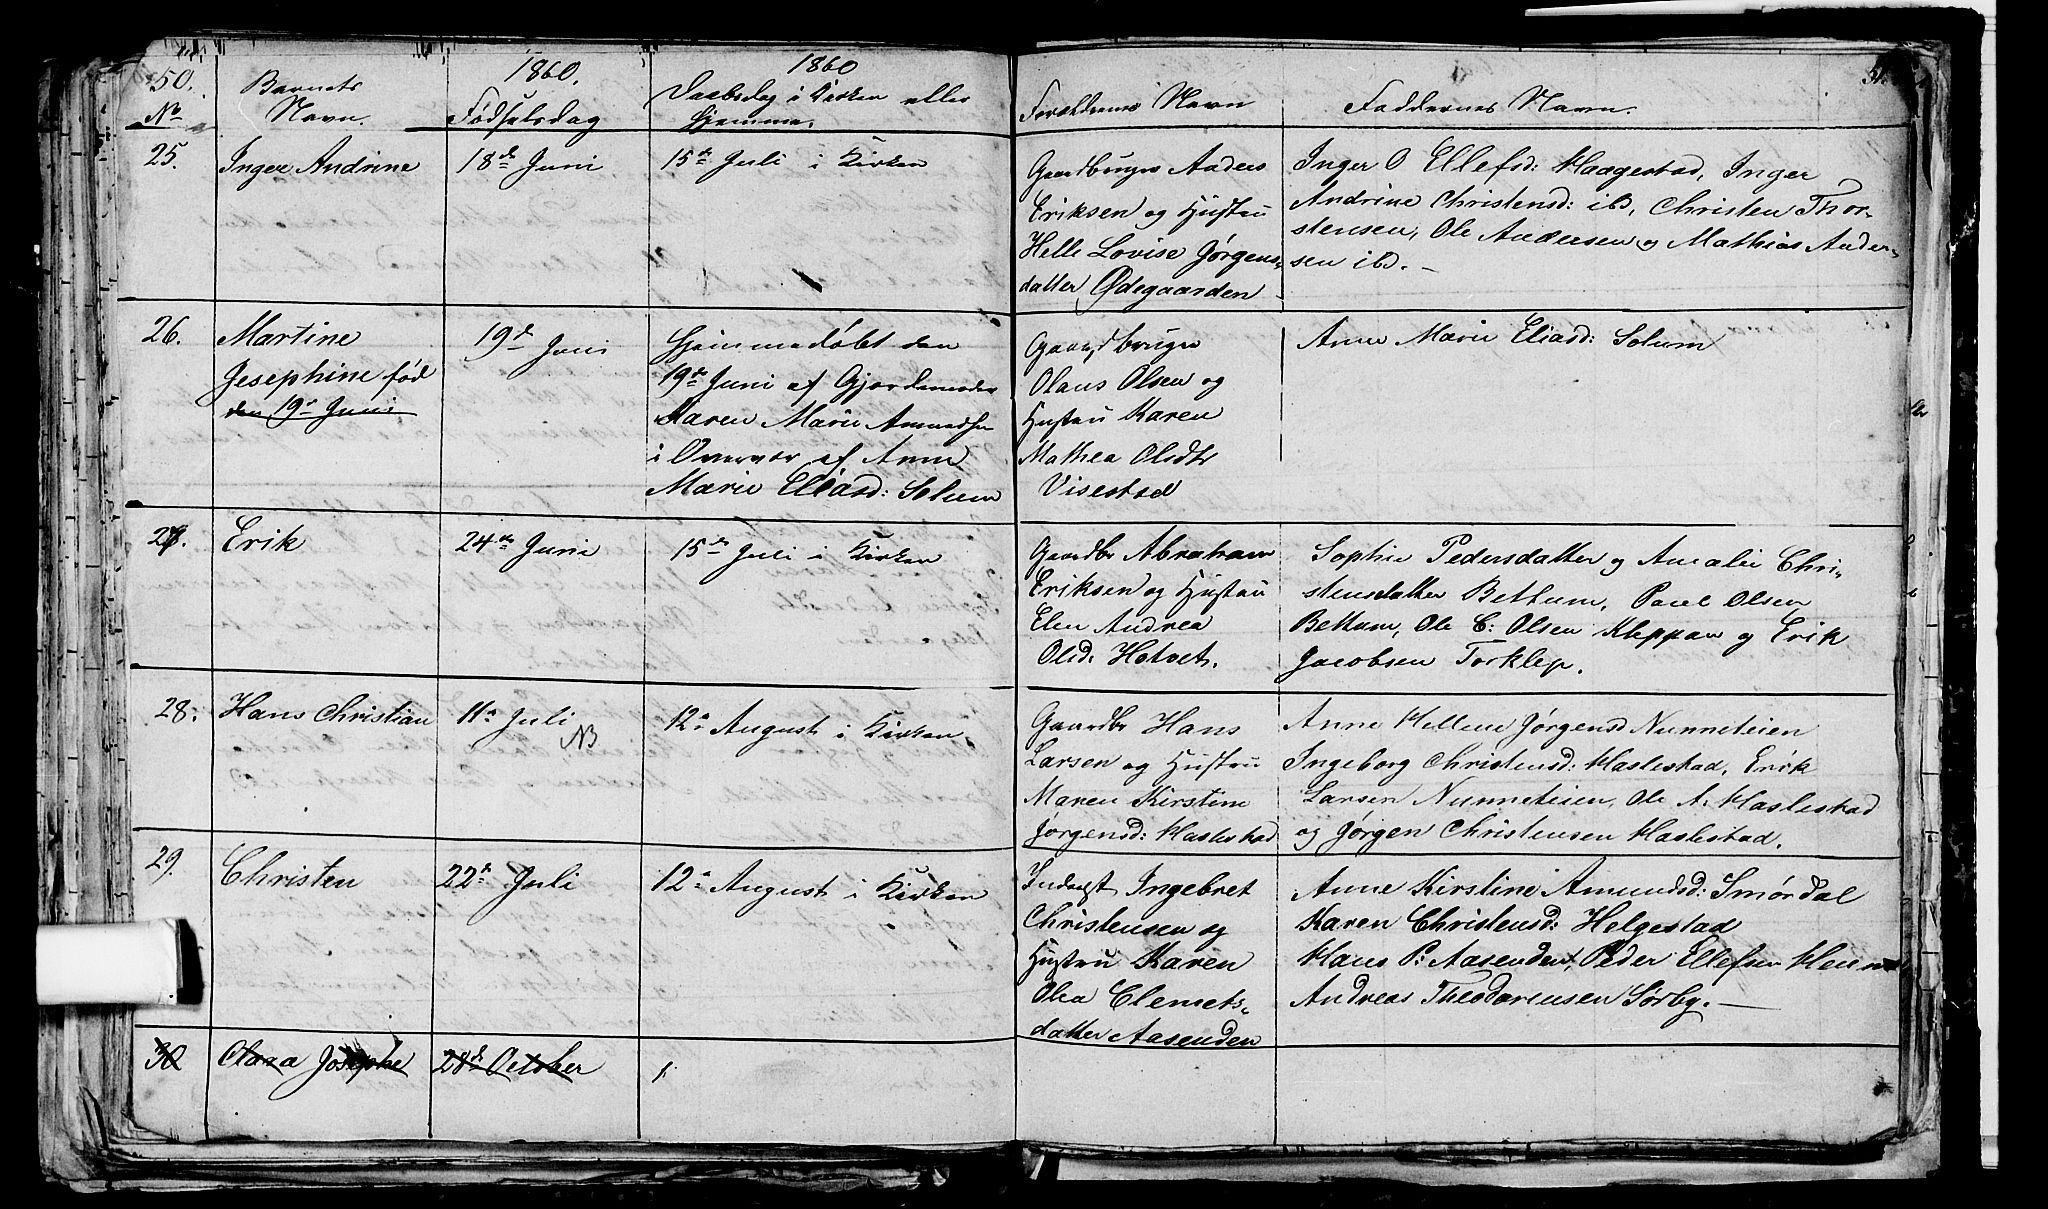 50.
No
Barnets
Navn.
1860.
Fødselsdag
1860
Daabsdag i Kirken eller
Hjemme.
Forældrenes Navn
Faddernes Navn.
51.
25.
Inger Andrine
18de Juni
15de Juli i Kirken
Gaardbruger Anders
Eriksen og Hustru
Helle Lovise Jørgens-
datter, Ødegaarden
Inger O Ellefsd: Haagestad, Inger
Andrine Christensd: ibd, Christen Thor-
stensen, Ole Andersen og Mathias Ander-
sen ibd. -
26.
Martine
Josephine fød
den 19de Juni
19de Juni
Hjemmedøbt den
19de Juni af Gjordemoder
Karen Marie Amundsen
i Overvær af Anne
Marie Eliasd: Solum
Gaardbruger
Olaus Olsen og
Hustru Karen
Mathea Olsdtr
Visestad
Anne Marie Eliasd: Solum
27.
Erik
24de Juni
15de Juli i Kirken
Gaardbr Abraham
Eriksen og Hustru
Elen Andrea
Olsd: Hotvet.
Sophie Pedersdatter og Amalie Chri-
stensdatter Bettum, Poul Olsen
Bettum, Ole C: Olsen Kleppan og Erik
Jacobsen Torklep.
28.
Hans Christian
11te Juli
NB
12te August i Kirken
Gaardbr Hans
Larsen og Hustru
Maren Kirstine
Jørgensd: Haslestad
Anne Hellene Jørgensd Nunneteien
Ingeborg Christensd: Haslestad, Erik
Larsen Nunneteien, Ole A. Haslestad
og Jørgen Christensen Haslestad.
29.
Christen
22de Juli
12te August i Kirken
Inderst Ingebret
Christensen og
Hustru Karen
Olea Clemets-
datter Aasenden
Anne Kirstine Amundsd: Smørdal
Karen Christensd: Helgestad
Hans P: Aasenden, Peder Ellefsen Heum
Andreas Theodorensen Sørby. -
30
Olava Josephe
28de October
1.